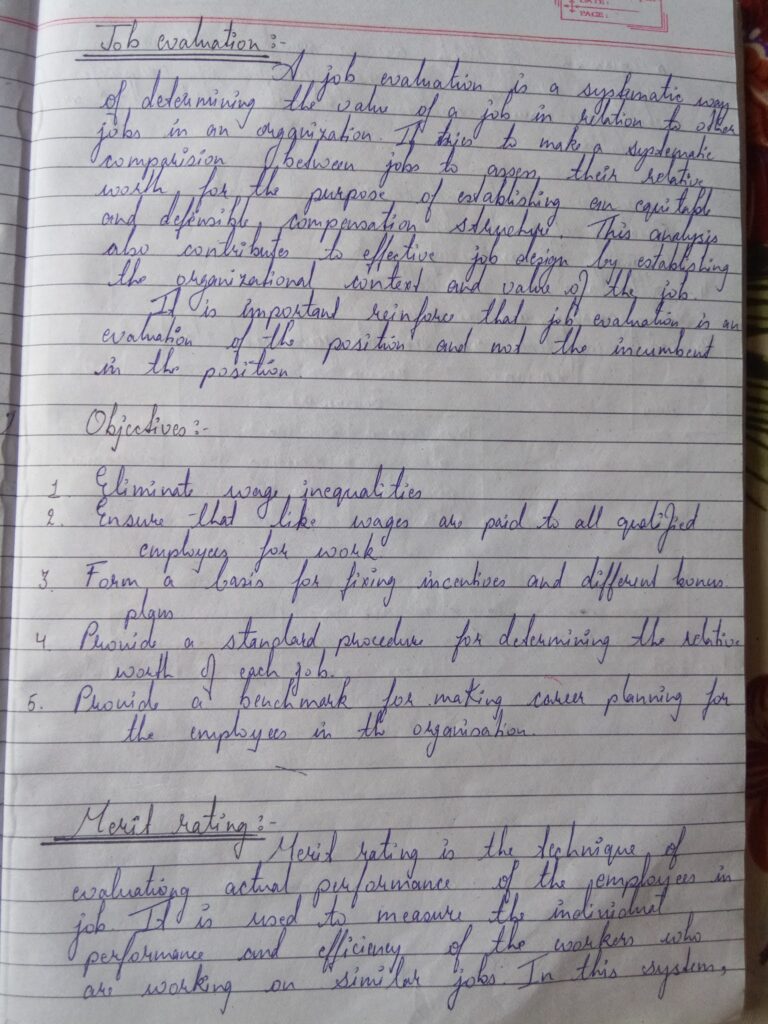 DATE:
PAGE:
Job evaluation :-
A job evaluation is a systematic way
of determining the value of a job in relation to other
jobs in an organization. It tries to make a systematic
comparision between jobs to assess their relative
worth for the purpose of establishing an equitable
and defensible compensation structure. This analysis
also contributes to effective job design by establishing
the organizational context and value of the job.
It is important reinforce that job evaluation is an
evaluation of the position and not the incumbent
in the position.
Objectives :-
1. Eliminate wage inequalities
2. Ensure that like wages are paid to all qualified
employees for work
3. Form a basis for fixing incentives and different bonus
plans
4. Provide a standard procedure for determining the relative
worth of each job.
5. Provide a benchmark for making career planning for
the employees in th organisation.
Merit rating :-
Merit rating is the technique of
evaluationg actual performance of the employees in
job. It is used to measure the individual
performance and efficiency of the workers who
are working on similar jobs. In this system,